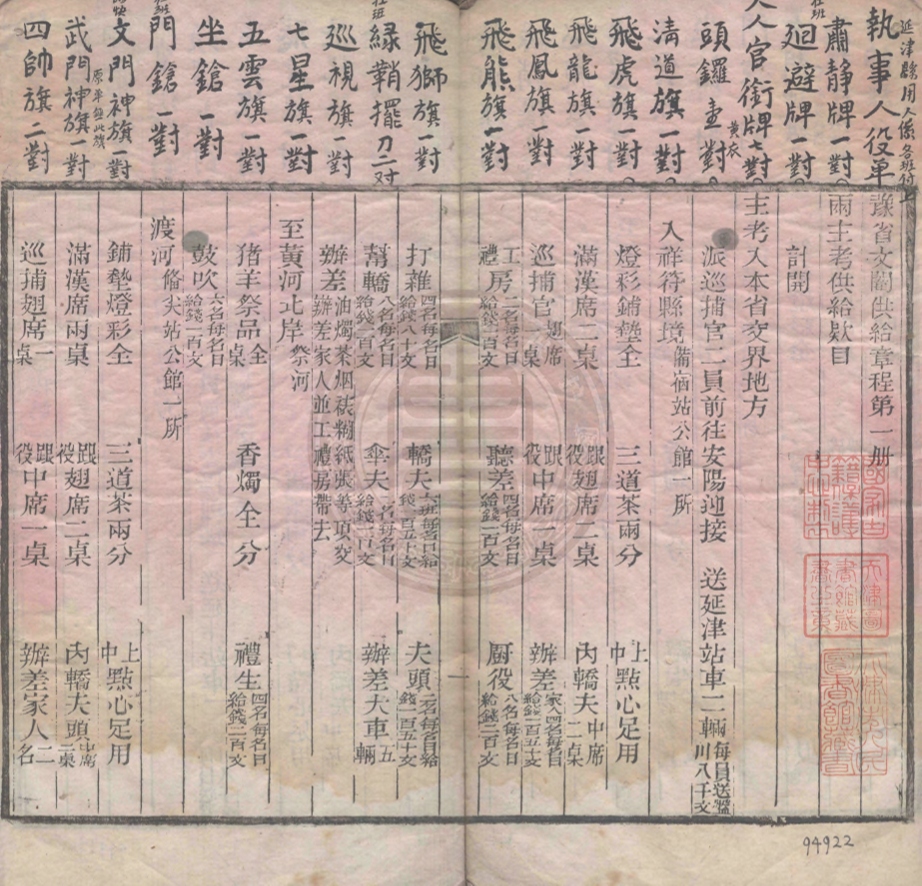 執事人役單
肅靜牌一對
迴避牌一對
大人官銜牌七對
頭鑼 對
清道旗一對
飛虎旗一對
飛龍旗一對
飛鳳旗一對
飛熊旗一對
飛獅旗一對
緑鞘擺刀二对
巡視旗一對
七星旗一對
五雲旗一對
坐鎗一對
門鎗一對
文門神旗一對
武門神旗一對
四帥旗二對
豫省文闈供給章程第一册
兩主考供給欵目
計開
主考入本省交界地方
派巡捕官二員前往安陽迎接 送延津站車二輛 每員送盤川八千文
入祥符縣境 備宿站公館一所
燈彩鋪墊全 三道茶兩分 上中點心足用
滿漢席二桌 跟役翅席二桌 内轎夫中席二桌
巡捕官翅席一桌 跟役中席一桌 辦差家人四名每名日給錢一百五十文
工禮房二名每名日給錢一百文 聽差四名每名日給錢一百文 厨役八名每名日給錢二百文
打雜四名每名日給錢八十文 轎夫六班每名日給錢一百五十文 夫頭二名每名日給錢一百五十文
幫轎八名每名日給錢一百文 傘夫二名每名日給錢一百文 辦差大車五輛
辦差油燭茶烟裱糊紙張等項交辦差家人並工禮房帶去
至黃河北岸祭河
猪羊祭品全桌 香燭全分 禮生四名每名日給錢二百文
鼓吹六名每名日給錢一百文
渡河備尖站公館一所
鋪墊燈彩全 三道茶兩分 上中點心足用
滿漢席兩桌 跟役翅席二桌 内轎夫頭中席二桌
巡捕翅席一桌 跟役中席一桌 辦差家人二名
94922